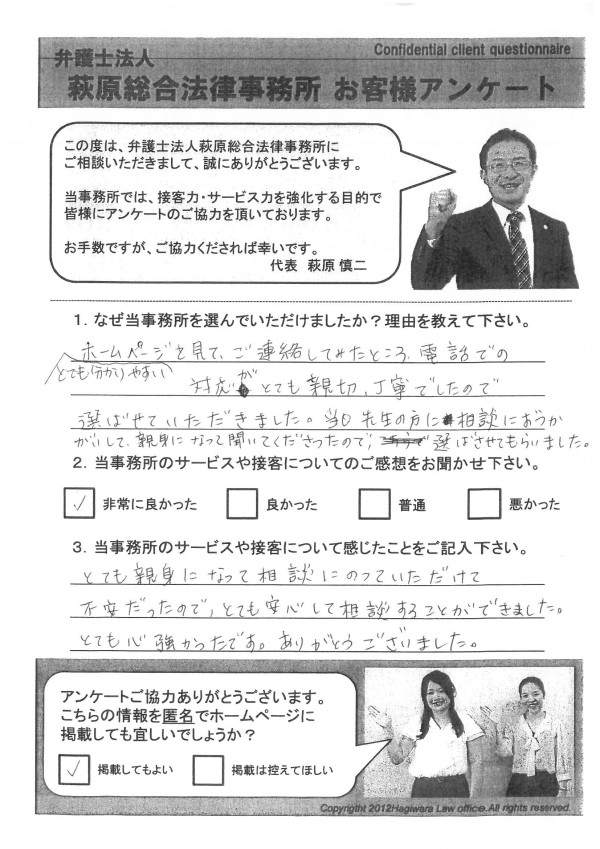 Confidential client questionnaire
弁護士法人
萩原総合法律事務所 お客様アンケート
この度は、弁護士法人萩原総合法律事務所に
ご相談いただきまして、誠にありがとうございます。
当事務所では、接客力・サービス力を強化する目的で
皆様にアンケートのご協力を頂いております。
お手数ですが、ご協力くだされば幸いです。
代表 萩原 慎二
1. なぜ当事務所を選んでいただけましたか？理由を教えて下さい。
ホームページを見て、ご連絡してみたところ、電話での
とても分かりやすい
対応がとても親切、丁寧でしたので
選ばせていただきました。当日先生の方に相談におうか
がいして、親身になって聞いてくださったので、選ばさせてもらいました。
2. 当事務所のサービスや接客についてのご感想をお聞かせ下さい。
✓ 非常に良かった 良かった 普通 悪かった
3. 当事務所のサービスや接客について感じたことをご記入下さい。
とても親身になって相談にのっていただけて
不安だったので、とても安心して相談することができました。
とても心強かったです。ありがとうございました。
アンケートご協力ありがとうございます。
こちらの情報を匿名でホームページに
掲載しても宜しいでしょうか？
✓ 掲載してもよい 掲載は控えてほしい
Copyright 2012Hagiwara Law office.All rights reserved.